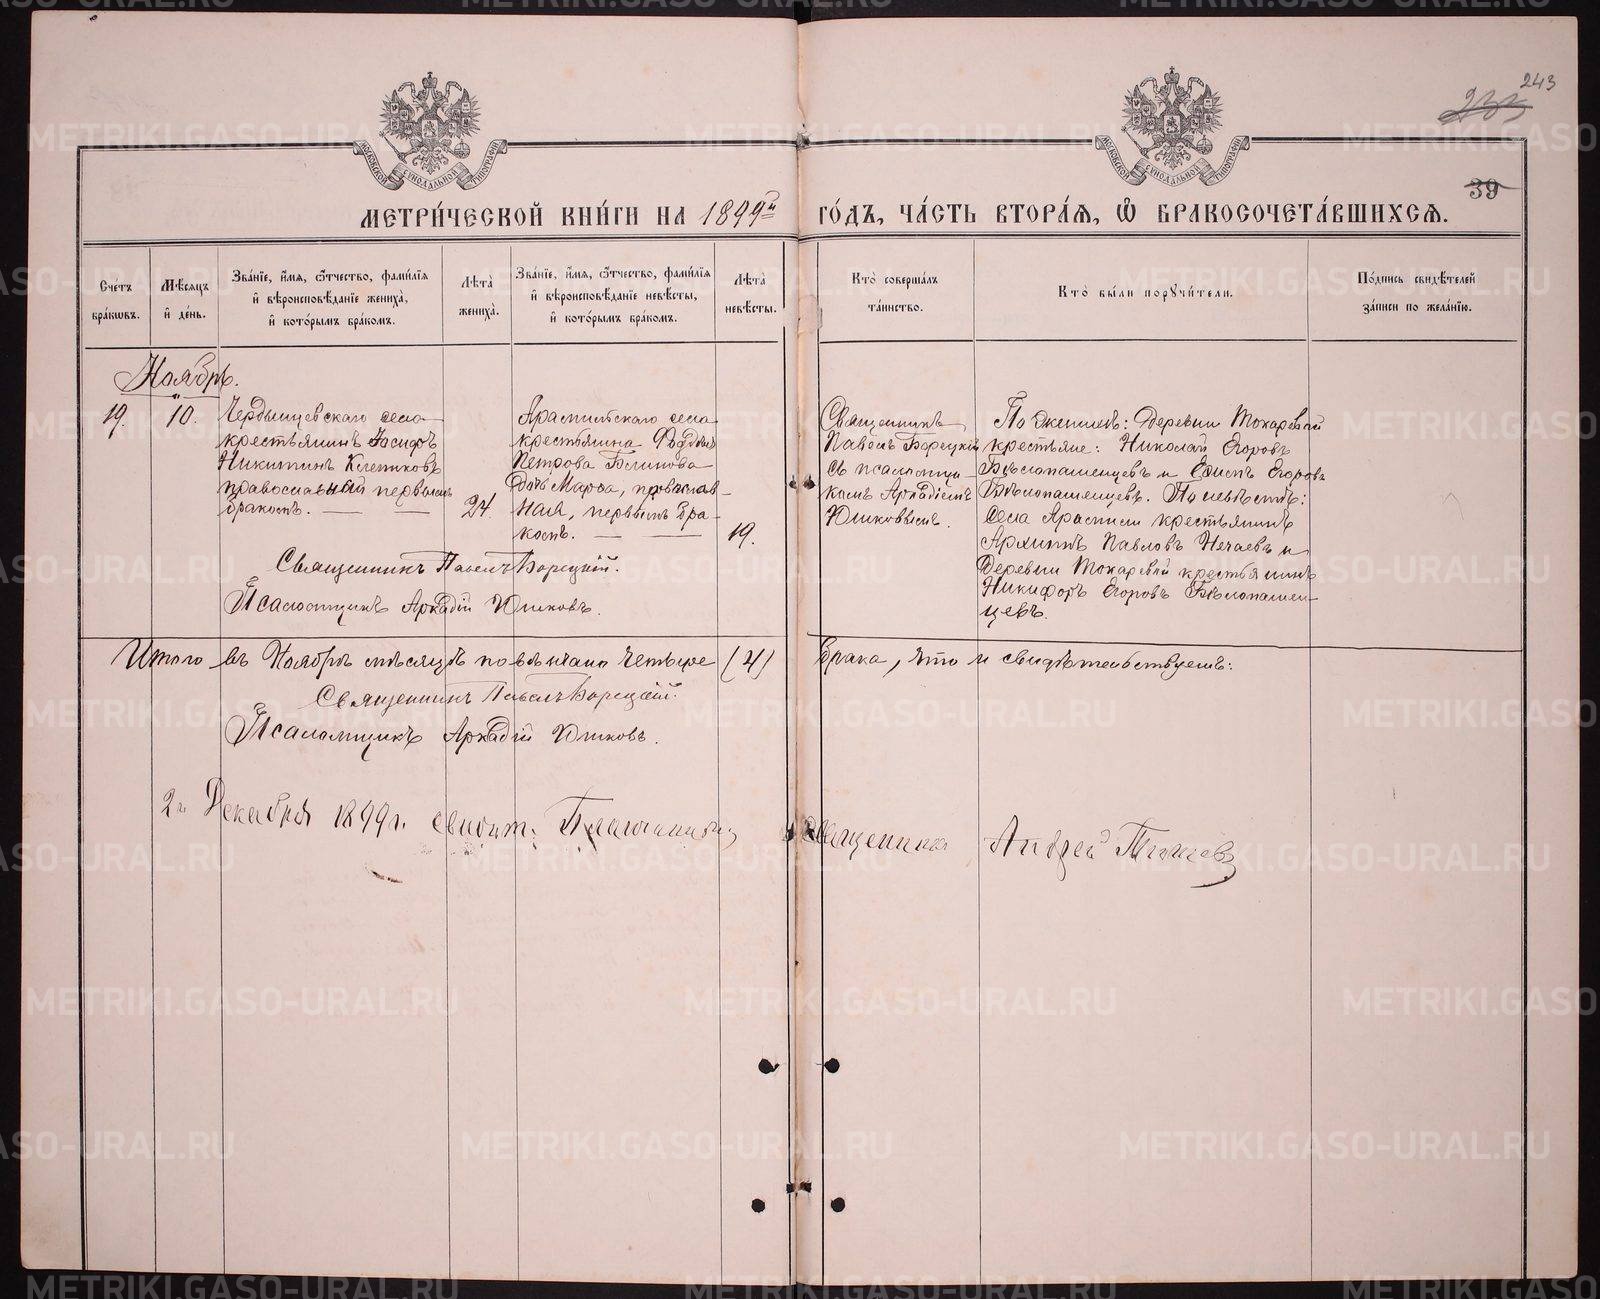 243
39
МЕТРИ́ЧЕСКОЙ КНИ́ГИ НА 1899й ГО́ДЪ, ЧА́СТЬ ВТОРА́Я, Ѽ БРАКОСОЧЕТА́ВШИХСЯ.
Сче́тъ бра́ковъ.
Мѣ́сяцъ и де́нь.
Зва́нїе, и́мя, ѻ́тчество, фами́лїя и вѣроисповѣ́данїе жениха̀, и кото́рымъ бра́комъ.
Лѣ́та жениха̀.
Зва́нїе, и́мя, ѻ́тчество, фами́лїя и вѣроисповѣ́данїе невѣ́сты, и кото́рымъ бра́комъ.
Лѣ́та невѣ́сты.
Кто̀ соверша́лъ та́инство.
Кто̀ бы́ли порꙋчи́тели.
По́дпись свидѣ́телей за́писи по жела́нїю.
Ноябрь.
19. 10.
Чердынцевскаго села
крестьянинъ Іосифъ
Никитинъ Клепиковъ
православный первымъ
бракомъ.
24
Арамильскаго села
крестьянина
Петрова Блинова
дочь Марѳа, православ-
ная, первымъ бра-
комъ.
19.
Священникъ
Павелъ Борецкій
съ псаломщи-
комъ Аркадіемъ
Юшковымъ.
По женихѣ: Деревни Токаревой
крестьяне: Николай Егоровъ
Бѣлопашенцевъ и Егоровъ
Бѣлопашенцевъ. По невѣстѣ:
села Арамили крестьянинъ
Архиппъ Павловъ Нечаевъ и
Деревни Токаревой крестьянинъ
Никифоръ Егоровъ Бѣлопашен-
цевъ.
Священникъ Павелъ Борецкій.
Псаломщикъ Аркадій Юшковъ.
Итого въ Ноябрѣ мѣсяцѣ повѣнчано четыре (4) брака, что и свидѣтельствуемъ:
Священникъ Павелъ Борецкій.
Псаломщикъ Аркадій Юшковъ.
2го Декабря 1899 г. свидѣт. Благочинный Священникъ Андрей
METRIKI.GASO-URAL.RU